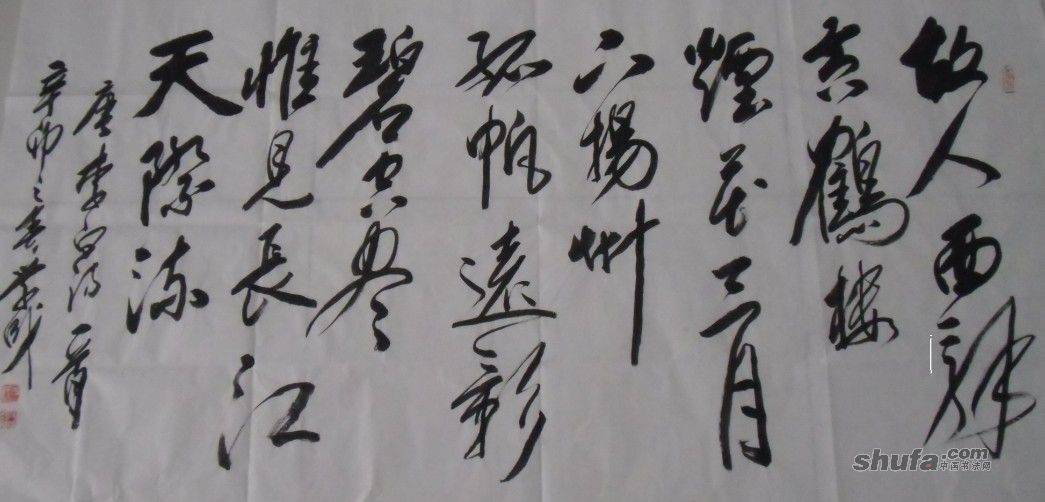 故人西辞
黄鶴楼
煙花三月
下揚州
孤帆遠影
碧空尽
惟見長江
天際流
唐李白诗一首
辛卯之春
shufa.com
中国书法网